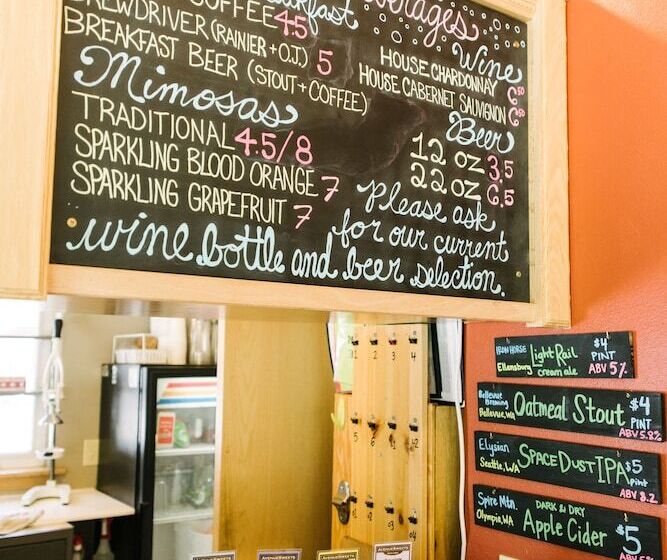 COFFEE 4.5
Breakfast
Beverages
BREWDRIVER (RAINIER + O.J.) 5
BREAKFAST BEER (STOUT + COFFEE)
Mimosas
TRADITIONAL 4.5/8
SPARKLING BLOOD ORANGE 7
SPARKLING GRAPEFRUIT 7
Wine
HOUSE CHARDONNAY 6.50
HOUSE CABERNET SAUVIGNON 6.50
Beer
12 oz 3.5
22 oz 6.5
Please ask
for our current
wine bottle and beer selection.
IRON HORSE
Ellensburg
Light Rail
cream ale
$4
PINT
ABV 5%
Bellevue
Brewing
Bellevue, WA
Oatmeal Stout
$4
PINT
ABV 5.8%
Elysian
Seattle, WA
SPACE DUST IPA
$5
pint
ABV 8.2
Spire Mtn.
Olympia, WA
DARK & DRY
Apple Cider
$5
PINT
2
3
4
5
6
AVENUE SWEETS
AVENUE SWEETS
AVENUE SWEETS